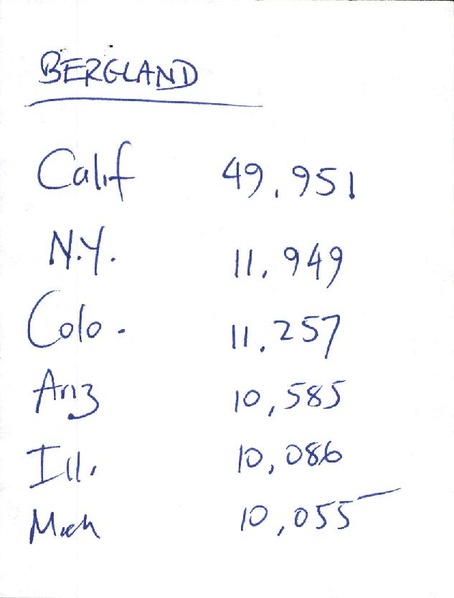 BERGLAND
Calif 49,951
N.Y. 11,949
Colo. 11,257
Ariz 10,585
Ill. 10,086
Mich 10,055